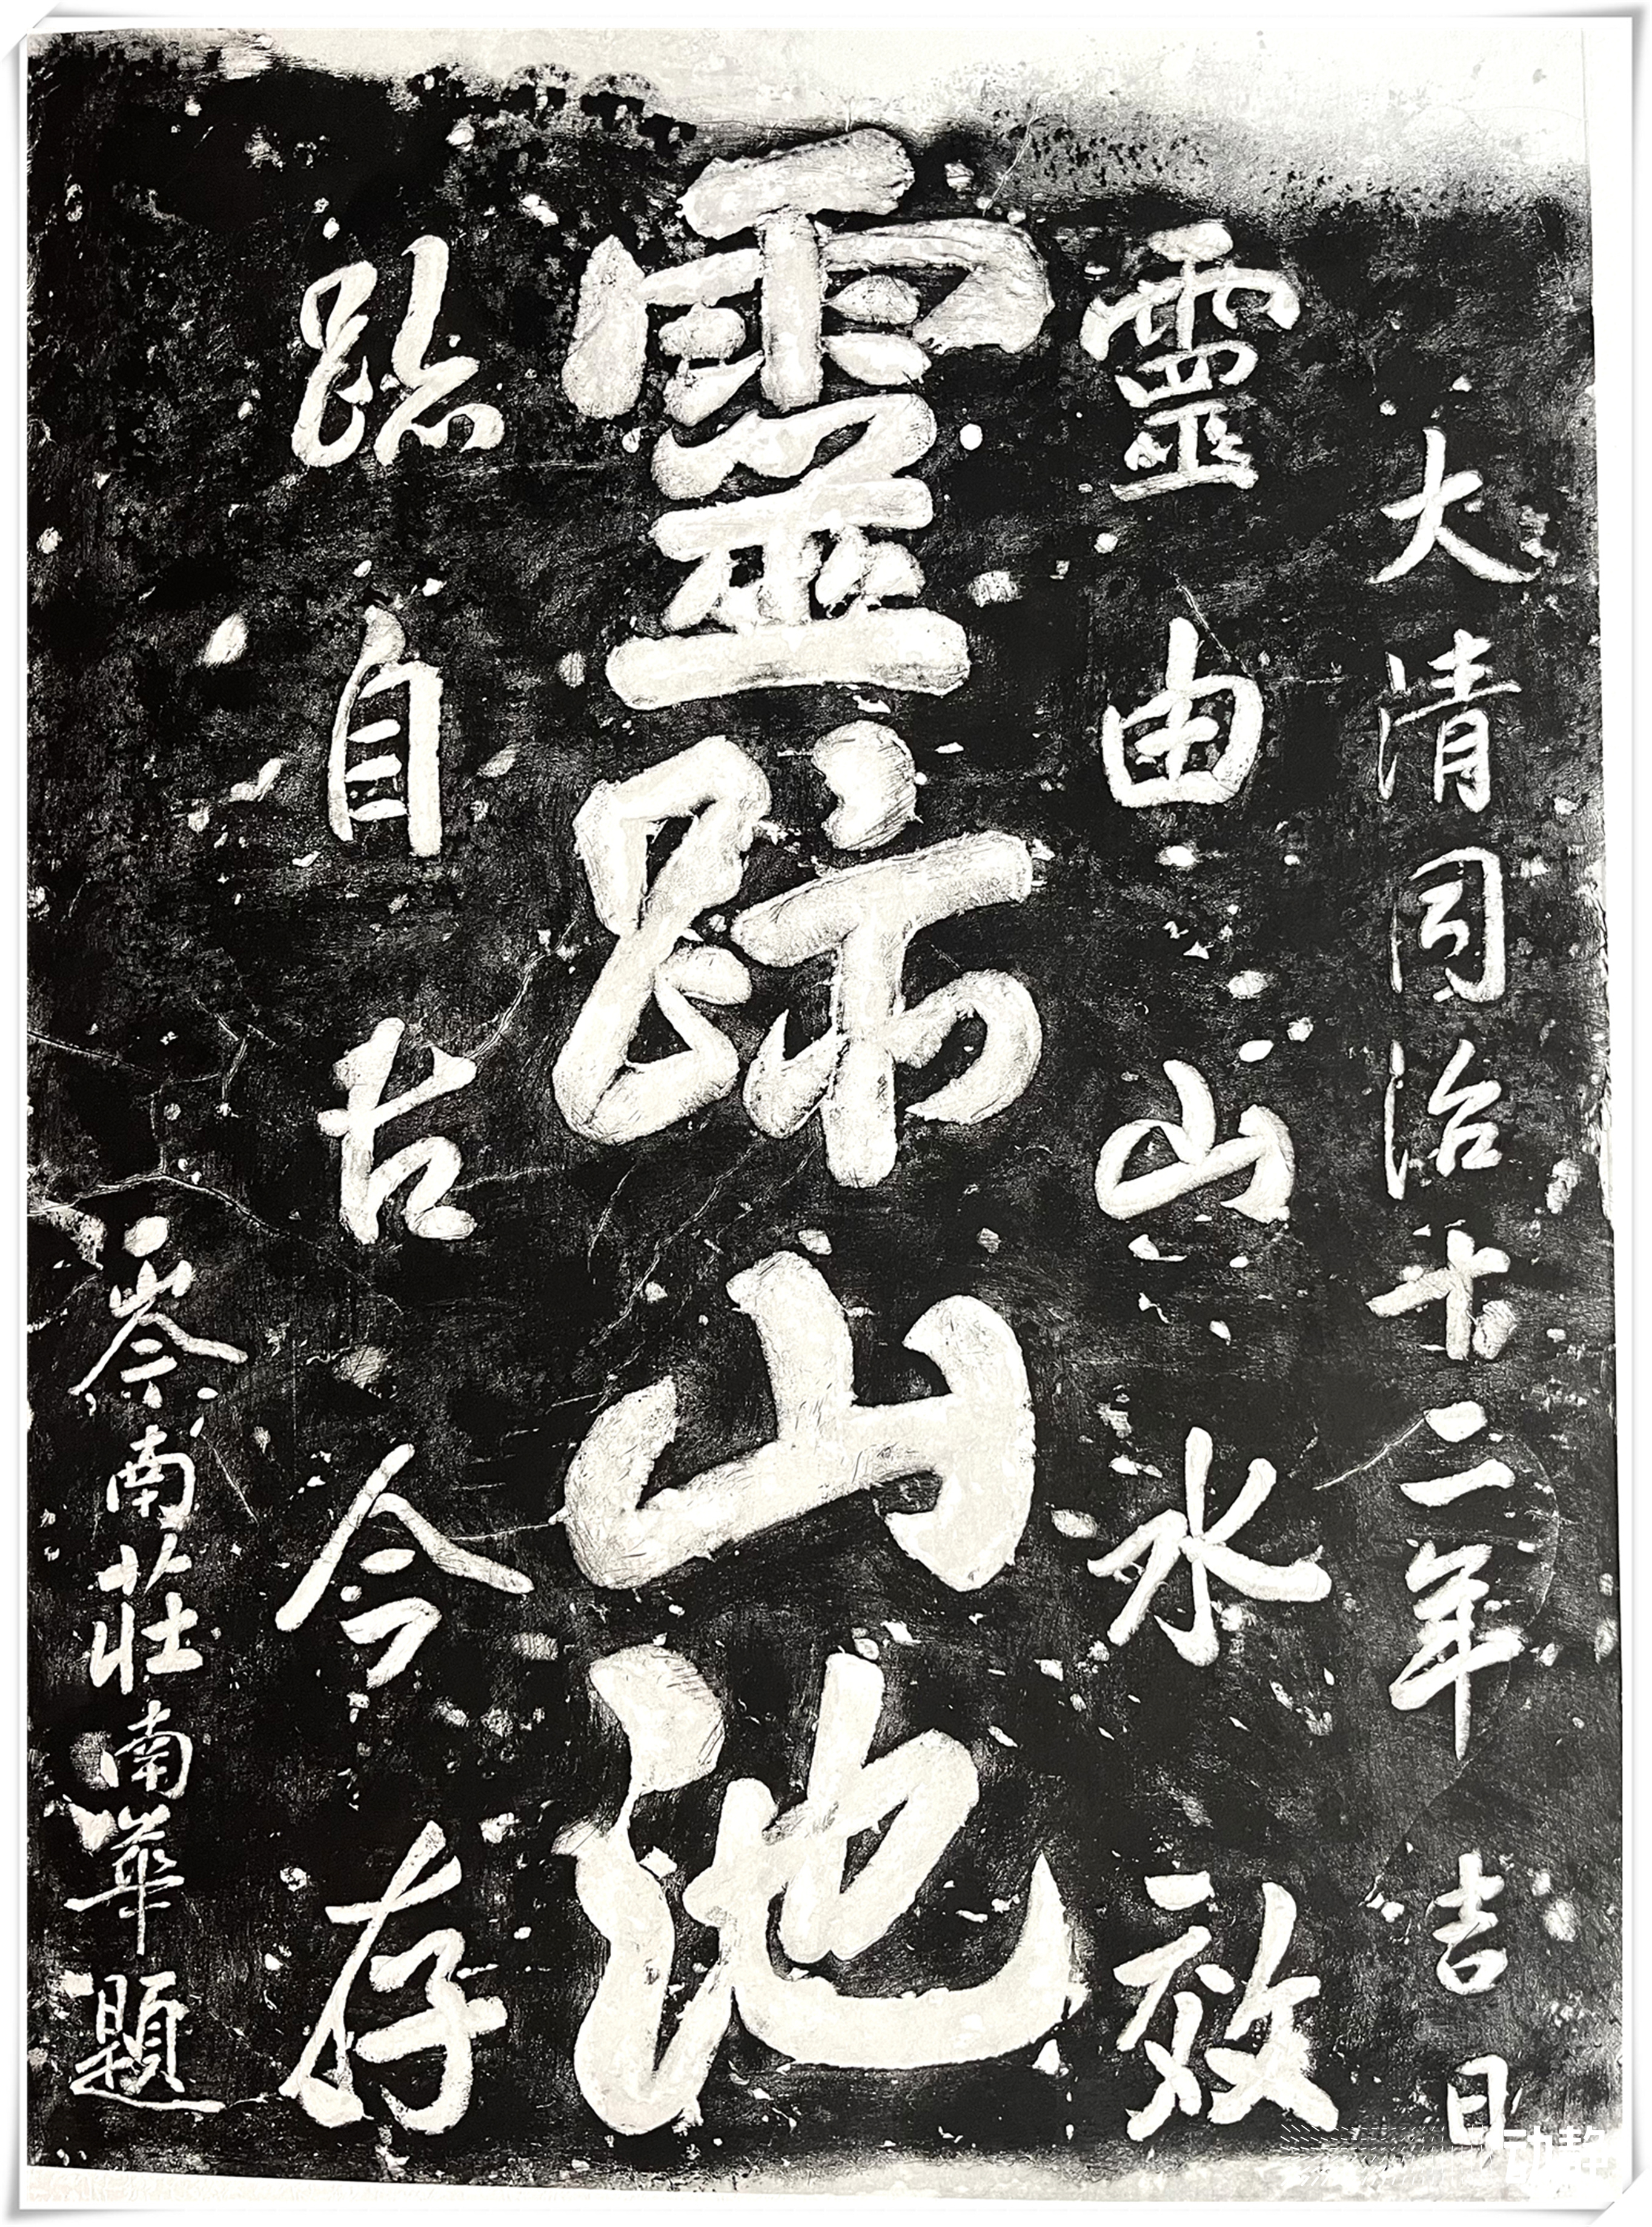 大清同治十二年 吉日
靈由山水效
靈跡山池
跡自古今存
岑南莊南華題